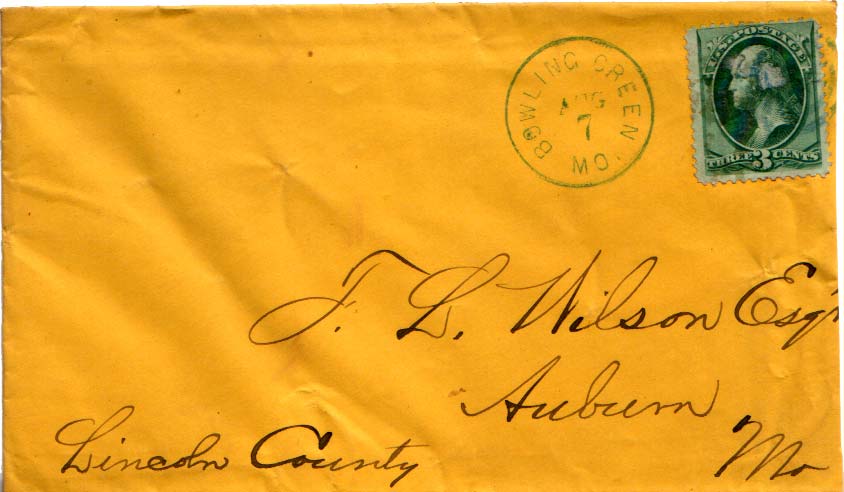 BOWLING GREEN MO.
AUG
7
U.S. POSTAGE
THREE 3 CENTS
T. L. Wilson Esqr
Auburn
Lincoln County Mo